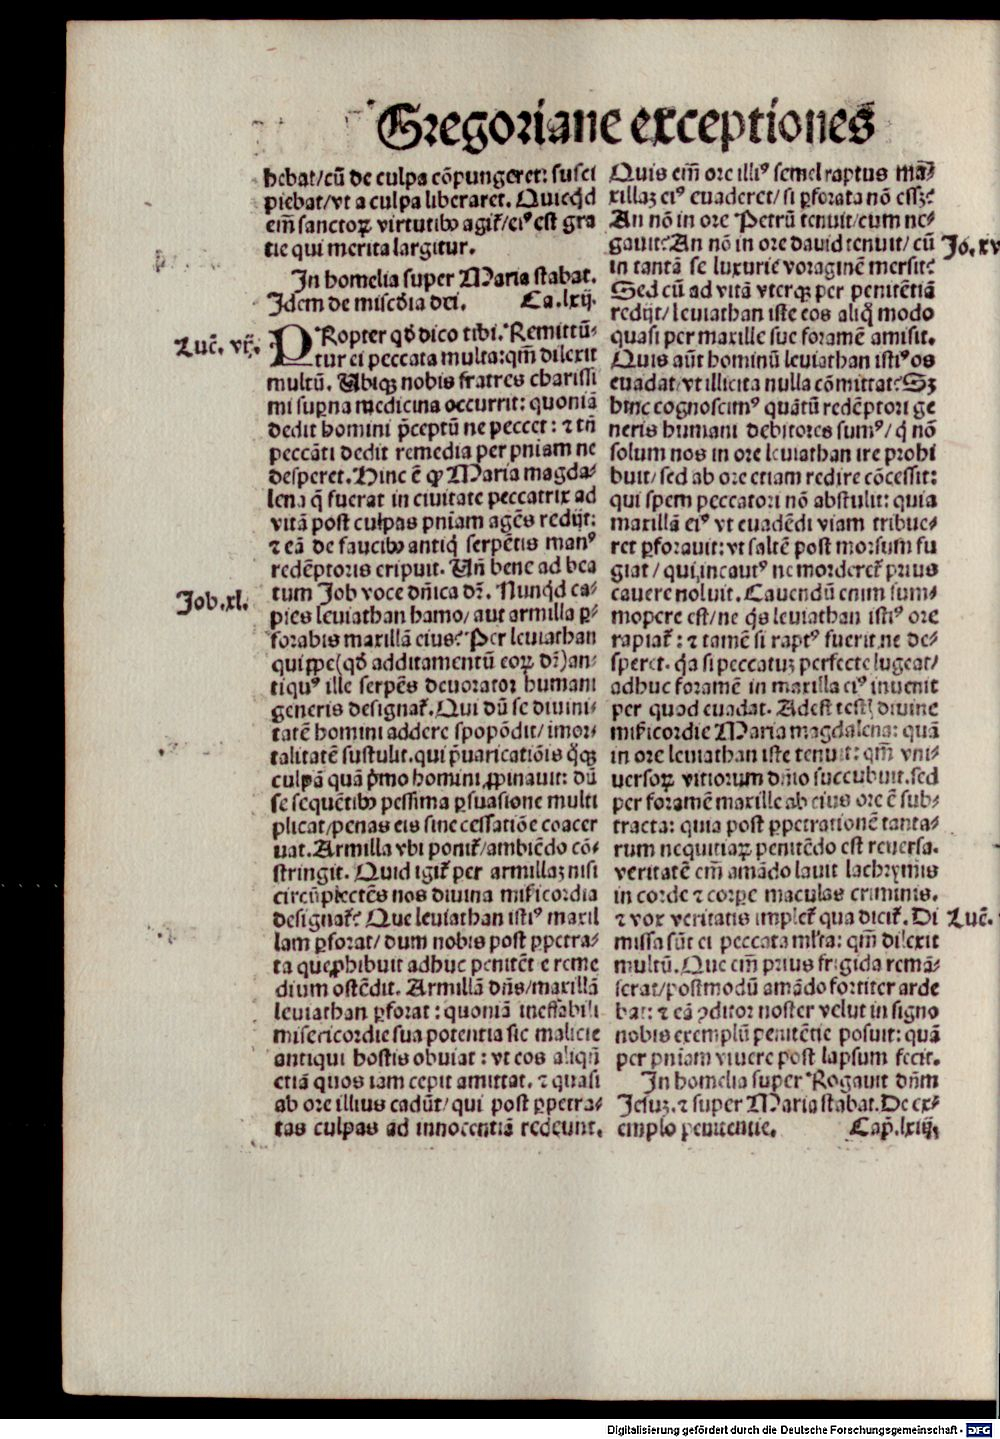 Gregoriane exceptiones
hebat/cū de culpa cōpungeret: susci
piebat/vt a culpa liberaret. Quicqd
em̄ sanctoꝝ virtutibꝰ agit̄/eiꝰ est gra
tie qui merita largitur.
In homelia super Maria stabat.
Idem de miscd̄ia dei. Ca.lxij.
Luc̄. vij.
PRopter qd̄ dico tibi. Remittū⸗
tur ei peccata multa:qm̄ dilexit
multū. Ubiqꝫ nobis fratres charissi
mi sup̄na medicina occurrit: quoniā
dedit homini p̄ceptū ne peccet: ⁊ tn̄
peccāti dedit remedia per pn̄iam ne
desperet. Hinc ē ꝙ Maria magda⸗
lena q̄ fuerat in ciuitate peccatrix ad
vitā post culpas pn̄iam agēs redijt:
⁊ eā de faucibꝰ antiq̄ serpētis manꝰ
redēptoris eripuit. Un̄ bene ad bea
Job.xl.
tum Job voce dn̄ica dr̄. Nunqd ca⸗
pies leuiathan hamo/aut armilla ꝑ⸗
forabis maxillā eius? Per leuiathan
quippe(qd̄ additamentū eoꝝ dr̄)an⸗
tiquꝰ ille serpēs deuorator humani
generis designat̄. Qui dū se diuini⸗
tatē homini addere spopōdit/imor⸗
talitatē sustulit. qui p̄uaricatiōis q̄qꝫ
culpā quā p̄mo homini ꝓpinauit: dū
se sequētibꝰ pessima ꝑsuasione multi
plicat/penas eis sine cessatiōe coacer
uat. Armilla vbi ponit̄/ambiēdo cō⸗
stringit. Quid igit̄ per armillaꝫ nisi
circūplectēs nos diuina mīcordia
designat̄? Que leuiathan istiꝰ maxil
lam ꝑforat/dum nobis post ꝑpetra⸗
ta que ꝓhibuit adhuc penitētie reme
dium ostēdit. Armillā dn̄s/maxillā
leuiathan ꝑforat: quoniā ineffabili
misericordie sua potentia sic malicie
antiqui hostis obuiat: vt eos aliqn̄
etiā quos iam cepit amittat. ⁊ quasi
ab ore illius cadūt/qui post ꝑpetra⸗
tas culpas ad innocentiā redeunt.
Quis em̄ ore illiꝰ semel raptus ma⸗
xillaꝫ eiꝰ euaderet/si ꝑforata nō esset?
An nō in ore Petrū tenuit/cum ne⸗
gauit? An nō in ore dauid tenuit/cū
Jo.xv
in tantā se luxurie voraginē mersit?
Sed cū ad vitā vterqꝫ per penitētiā
redijt/leuiathan iste eos aliq̄ modo
quasi per maxille sue foramē amisit.
Quis aūt hominū leuiathan istiꝰ os
euadat/vt illicita nulla cōmittat? Sꝫ
hinc cognoscimꝰ quātū redēptori ge
neris humani debitores sumꝰ/q̄ nō
solum nos in ore leuiathan ire prohi
buit/sed ab ore etiam redire cōcessit:
qui spem peccatori nō abstulit: quia
maxillā eiꝰ vt euadēdi viam tribue⸗
ret ꝑforauit: vt saltē post morsum fu
giat/qui incautꝰ ne morderet̄ prius
cauere noluit. Cauendū enim sum⸗
mopere est/ne q̄s leuiathan istiꝰ ore
rapiat̄: ⁊ tamē si raptꝰ fuerit ne de⸗
speret. q̄a si peccatuꝫ perfecte lugeat/
adhuc foramē in maxilla eiꝰ inuenit
per quod euadat. Adest testis diuine
mīcordie Maria magdalena: quā
in ore leuiathan iste tenuit: qm̄ vni⸗
uersoꝝ vitiorum dn̄io succubuit. sed
per foramē maxille ab eius ore ē sub⸗
tracta: quia post ꝑpetrationē tanta⸗
rum nequitiaꝝ penitēdo est reuersa.
veritatē em̄ amādo lauit lachrymis
in corde ⁊ corpe maculas criminis.
⁊ vox veritatis implet̄ qua dicit̄. Di
Luc̄.
missa sūt ei peccata ml̄ta: qm̄ dilexit
multū. Que em̄ prius frigida remā⸗
serat/postmodū amādo fortiter arde
bat: ⁊ eā ꝯditor noster velut in signo
nobis exemplū penitētie posuit: quā
per pn̄iam viuere post lapsum fecit.
In homelia super Rogauit dn̄m
Jesuꝫ. ⁊ super Maria stabat. De ex⸗
emplo penitentie. Cap̄.lxiij.
Digitalisierung gefördert durch die Deutsche Forschungsgemeinschaft - DFG